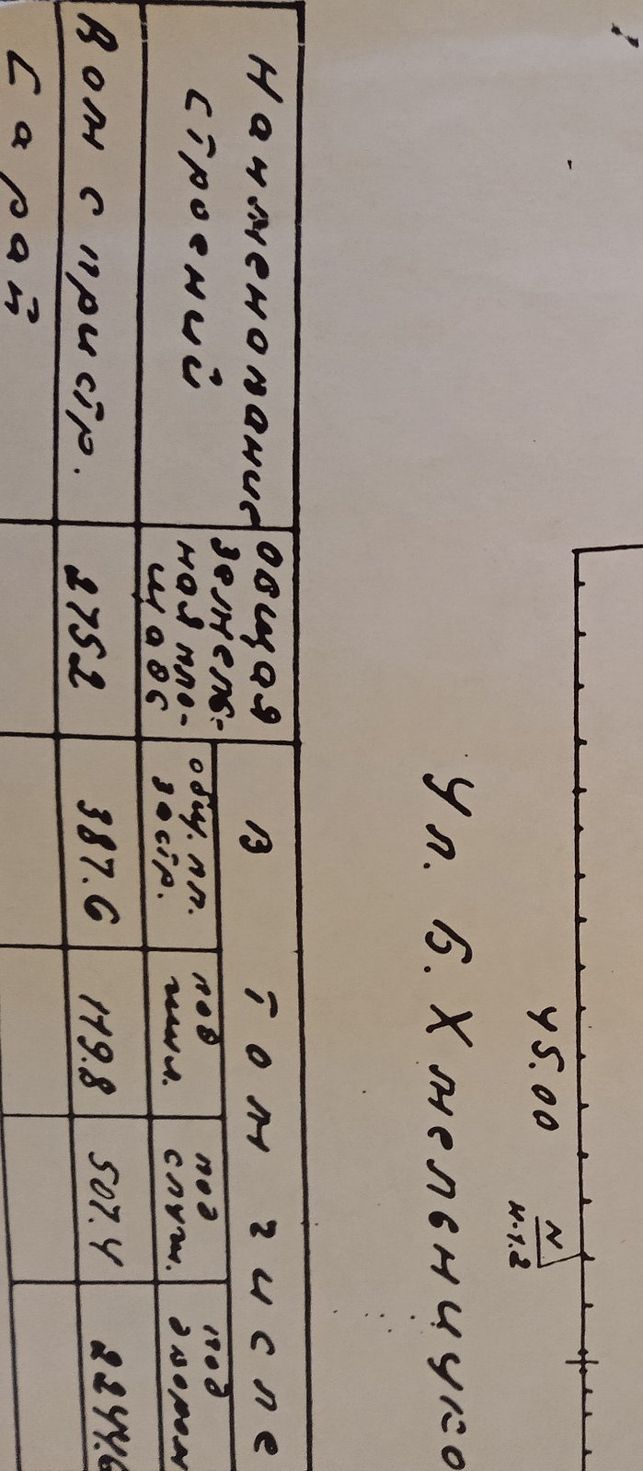 45.00
N
Н-1.2
Ул. Б. Хмельницко
Наименование
строений
Общая
земель-
ная пло-
щадь
В том числе
общ. пл.
застр.
под
жил.
под
служ.
под
двором
Дом с пристр.
2752
387.6
179.8
507.4
2244.6
Сарай